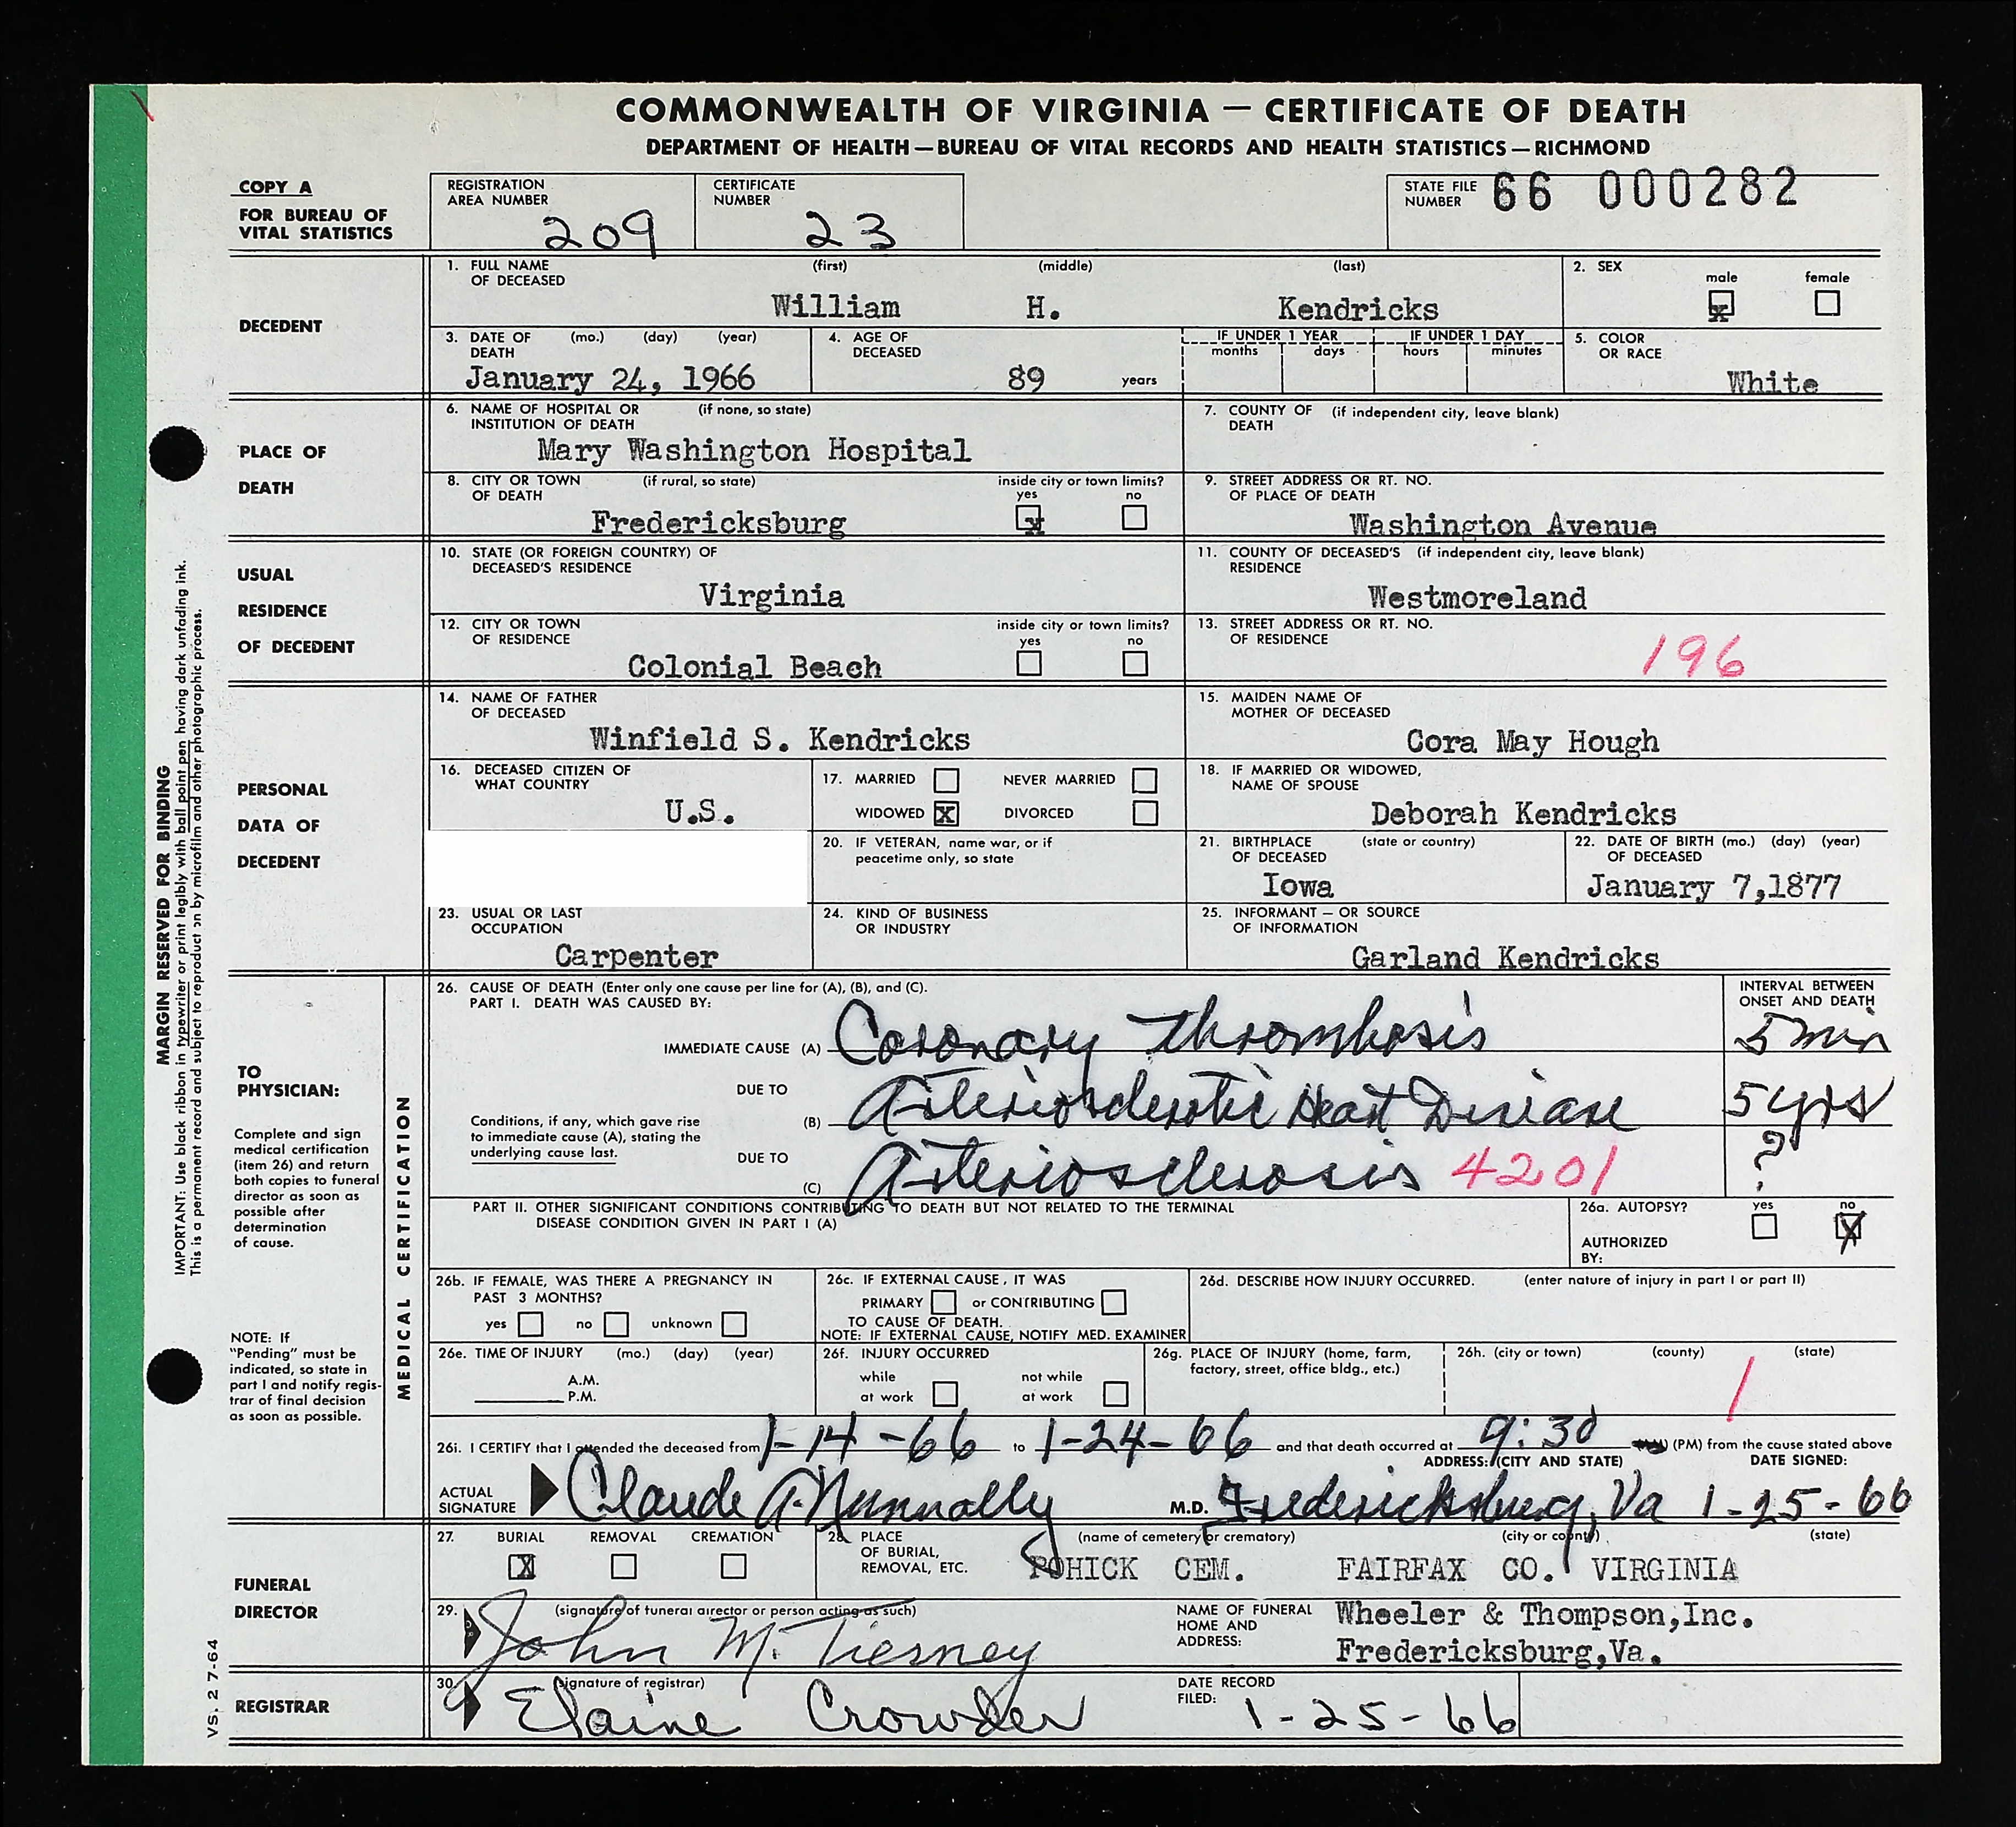 COMMONWEALTH OF VIRGINIA — CERTIFICATE OF DEATH
DEPARTMENT OF HEALTH — BUREAU OF VITAL RECORDS AND HEALTH STATISTICS — RICHMOND
COPY A
FOR BUREAU OF
VITAL STATISTICS
REGISTRATION
AREA NUMBER
209
CERTIFICATE
NUMBER
23
STATE FILE
NUMBER
66 000282
DECEDENT
1. FULL NAME
OF DECEASED
(first) (middle) (last)
William H. Kendricks
2. SEX
male female
x
3. DATE OF (mo.) (day) (year)
DEATH
January 24, 1966
4. AGE OF
DECEASED
89 years
IF UNDER 1 YEAR IF UNDER 1 DAY
months days hours minutes
5. COLOR
OR RACE
White
PLACE OF
DEATH
6. NAME OF HOSPITAL OR (if none, so state)
INSTITUTION OF DEATH
Mary Washington Hospital
7. COUNTY OF (if independent city, leave blank)
DEATH
8. CITY OR TOWN (if rural, so state)
OF DEATH
Fredericksburg
inside city or town limits?
yes no
x
9. STREET ADDRESS OR RT. NO.
OF PLACE OF DEATH
Washington Avenue
USUAL
RESIDENCE
OF DECEDENT
10. STATE (OR FOREIGN COUNTRY) OF
DECEASED'S RESIDENCE
Virginia
11. COUNTY OF DECEASED'S (if independent city, leave blank)
RESIDENCE
Westmoreland
12. CITY OR TOWN
OF RESIDENCE
Colonial Beach
inside city or town limits?
yes no
13. STREET ADDRESS OR RT. NO.
OF RESIDENCE
196
PERSONAL
DATA OF
DECEDENT
14. NAME OF FATHER
OF DECEASED
Winfield S. Kendricks
15. MAIDEN NAME OF
MOTHER OF DECEASED
Cora May Hough
16. DECEASED CITIZEN OF
WHAT COUNTRY
U.S.
17. MARRIED NEVER MARRIED
WIDOWED X DIVORCED
18. IF MARRIED OR WIDOWED,
NAME OF SPOUSE
Deborah Kendricks
20. IF VETERAN, name war, or if
peacetime only, so state
21. BIRTHPLACE (state or country)
OF DECEASED
Iowa
22. DATE OF BIRTH (mo.) (day) (year)
OF DECEASED
January 7,1877
23. USUAL OR LAST
OCCUPATION
Carpenter
24. KIND OF BUSINESS
OR INDUSTRY
25. INFORMANT — OR SOURCE
OF INFORMATION
Garland Kendricks
TO
PHYSICIAN:
Complete and sign
medical certification
(item 26) and return
both copies to funeral
director as soon as
possible after
determination
of cause.
NOTE: If
"Pending" must be
indicated, so state in
part I and notify regis-
trar of final decision
as soon as possible.
MEDICAL CERTIFICATION
26. CAUSE OF DEATH (Enter only one cause per line for (A), (B), and (C).
PART I. DEATH WAS CAUSED BY:
INTERVAL BETWEEN
ONSET AND DEATH
IMMEDIATE CAUSE (A) Coronary Thrombosis 5 min
DUE TO
Conditions, if any, which gave rise
to immediate cause (A), stating the
underlying cause last.
(B) Arteriosclerotic Heart Disease 5 yrs
DUE TO
(C) Arteriosclerosis 4201 ?
PART II. OTHER SIGNIFICANT CONDITIONS CONTRIBUTING TO DEATH BUT NOT RELATED TO THE TERMINAL
DISEASE CONDITION GIVEN IN PART I (A)
26a. AUTOPSY? yes no
X
AUTHORIZED
BY:
26b. IF FEMALE, WAS THERE A PREGNANCY IN
PAST 3 MONTHS?
yes no unknown
26c. IF EXTERNAL CAUSE, IT WAS
PRIMARY or CONTRIBUTING
TO CAUSE OF DEATH.
NOTE: IF EXTERNAL CAUSE, NOTIFY MED. EXAMINER
26d. DESCRIBE HOW INJURY OCCURRED. (enter nature of injury in part I or part II)
26e. TIME OF INJURY (mo.) (day) (year)
A.M.
P.M.
26f. INJURY OCCURRED
while not while
at work at work
26g. PLACE OF INJURY (home, farm,
factory, street, office bldg., etc.)
26h. (city or town) (county) (state)
1
26i. I CERTIFY that I attended the deceased from 1-14-66 to 1-24-66 and that death occurred at 9:30 (PM) from the cause stated above
ADDRESS: (CITY AND STATE) DATE SIGNED:
ACTUAL
SIGNATURE
Claude A. Nunnally M.D. Fredericksburg, Va 1-25-66
FUNERAL
DIRECTOR
27. BURIAL REMOVAL CREMATION
X
28. PLACE
OF BURIAL,
REMOVAL, ETC.
(name of cemetery or crematory) (city or county) (state)
POHICK CEM. FAIRFAX CO. VIRGINIA
29. (signature of funeral director or person acting as such)
John M. Tierney
NAME OF FUNERAL
HOME AND
ADDRESS:
Wheeler & Thompson,Inc.
Fredericksburg,Va.
REGISTRAR
30. (signature of registrar)
Elaine Crowder
DATE RECORD
FILED:
1-25-66
MARGIN RESERVED FOR BINDING
IMPORTANT: Use black ribbon in typewriter or print legibly with ball point pen having dark unfading ink.
This is a permanent record and subject to reproduction by microfilm and other photographic process.
VS. 2 7-64